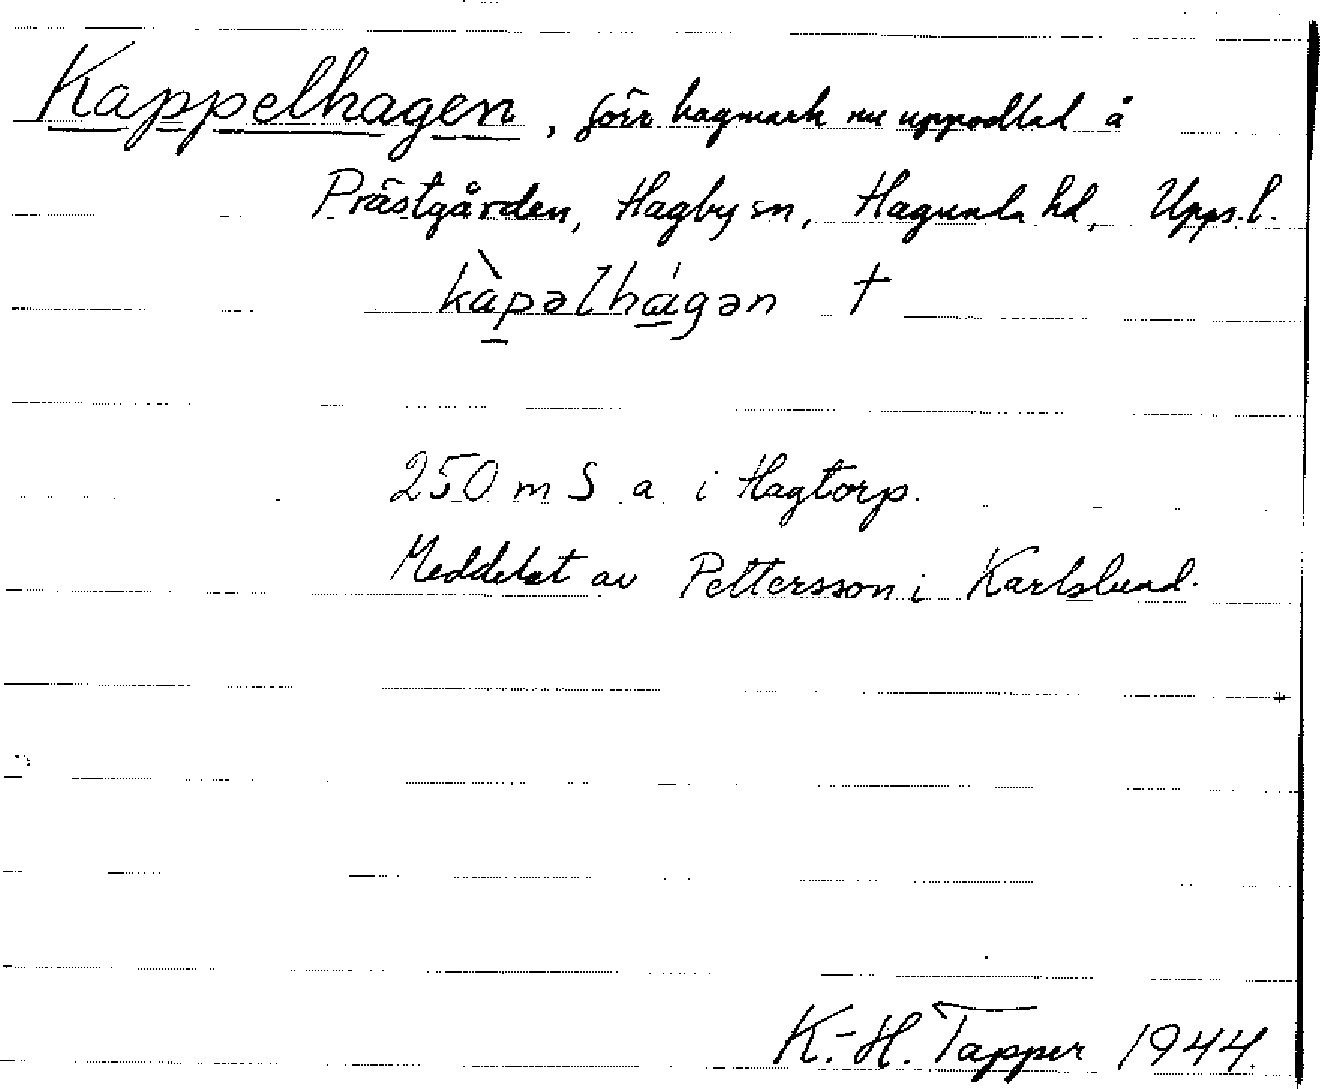 Kappelhagen, förr hagmark nu uppodlad å
Prästgården, Hagby sn, Hagunda hd, Upps. l.
kàpəlhágən †
250 m S a i Hagtorp.
Meddelat av Pettersson i Karlslund.
K.-H. Tapper 1944.